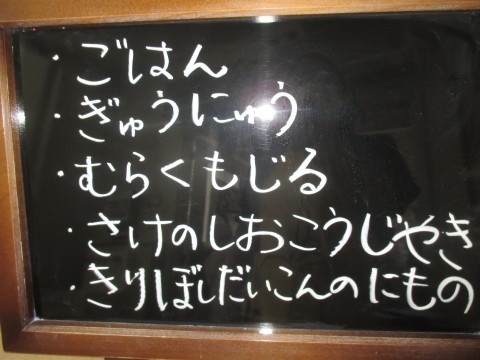 ・ごはん
・ぎゅうにゅう
・むらくもじる
・さけのしおこうじやき
・きりぼしだいこんのにもの